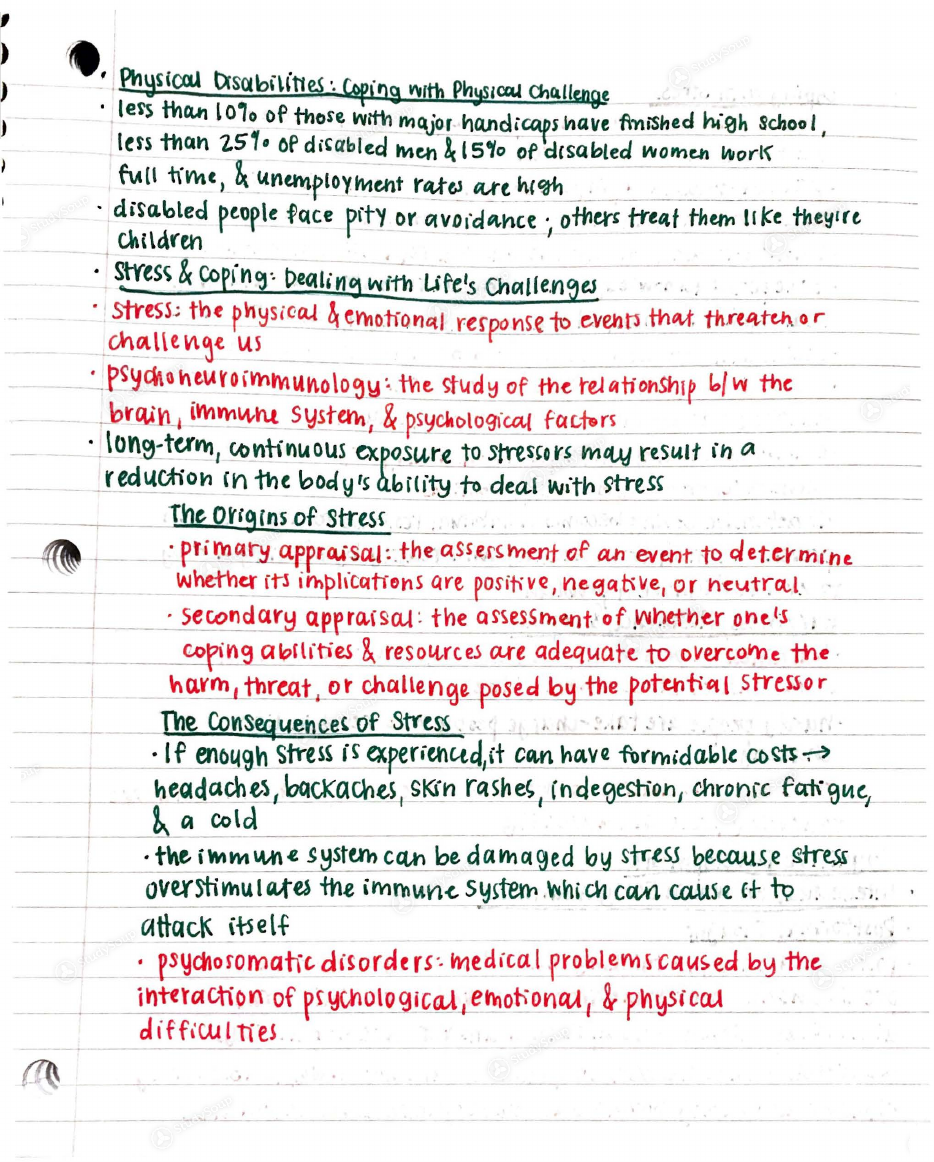 · Physical Disabilities: Coping with Physical Challenge
· less than 10% of those with major handicaps have finished high school,
less than 25% of disabled men & 15% of disabled women work
full time, & unemployment rates are high
· disabled people face pity or avoidance; others treat them like they're
children
· Stress & Coping: Dealing with Life's Challenges
· stress: the physical & emotional response to events that threaten or
challenge us
· psychoneuroimmunology: the study of the relationship b/w the
brain, immune system, & psychological factors
· long-term, continuous exposure to stressors may result in a
reduction in the body's ability to deal with stress
The Origins of Stress
· primary appraisal: the assessment of an event to determine
whether its implications are positive, negative, or neutral
· secondary appraisal: the assessment of whether one's
coping abilities & resources are adequate to overcome the
harm, threat, or challenge posed by the potential stressor
The Consequences of Stress
· If enough stress is experienced, it can have formidable costs →
headaches, backaches, skin rashes, indegestion, chronic fatigue,
& a cold
· the immune system can be damaged by stress because stress
overstimulates the immune system which can cause it to
attack itself
· psychosomatic disorders: medical problems caused by the
interaction of psychological, emotional, & physical
difficulties